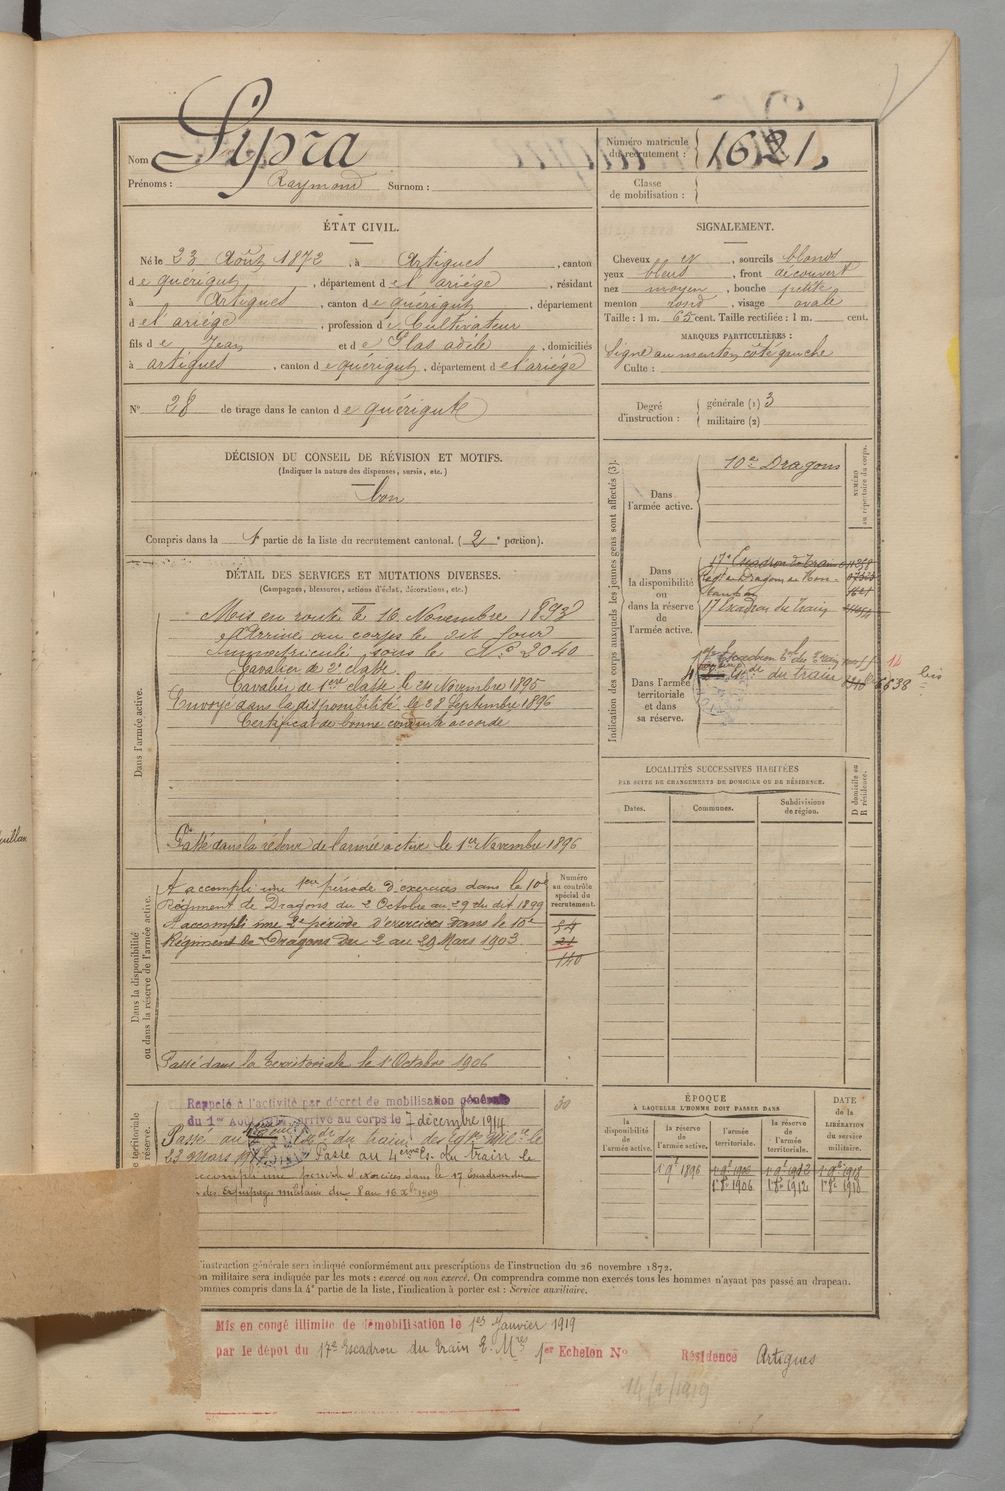 Nom Sipra
Prénoms : Raymond Surnom :
Numéro matricule du recrutement : 1621
Classe de mobilisation :
ÉTAT CIVIL.
Né le 23 Août 1872, à Artigues, canton
de quérigut, département de l'ariége, résidant
à Artigues, canton de quérigut, département
de l'ariége, profession de Cultivateur
fils de Jean et de Glas adèle, domiciliés
à artigues, canton de quérigut, département de l'ariége
N° 28 de tirage dans le canton de quérigut
SIGNALEMENT.
Cheveux et, sourcils blonds
yeux bleus, front découvert
nez moyen, bouche petite
menton rond, visage ovale
Taille : 1 m. 65 cent. Taille rectifiée : 1 m. cent.
MARQUES PARTICULIÈRES :
Signe au menton côté gauche
Culte :
Degré d'instruction : générale (1) 3
militaire (2)
DÉCISION DU CONSEIL DE RÉVISION ET MOTIFS.
(Indiquer la nature des dispenses, sursis, etc.)
bon
Compris dans la 1e partie de la liste du recrutement cantonal. (2e portion).
DÉTAIL DES SERVICES ET MUTATIONS DIVERSES.
(Campagnes, blessures, actions d'éclat, décorations, etc.)
Dans l'armée active.
Mis en route le 16 Novembre 1893
Arrivé au corps le dit jour
Immatriculé sous le N° 2040
Cavalier de 2e classe
Cavalier de 1ere classe le 24 Novembre 1895
Envoyé dans la disponibilité le 28 Septembre 1896
Certificat de bonne conduite accordé
Passé dans la réserve de l'armée active le 1er Novembre 1896
Dans la disponibilité
ou dans la réserve de l'armée active.
A accompli une 1ere période d'exercices dans le 10e
Régiment de Dragons du 2 Octobre au 29 du dit 1899
A accompli une 2e période d'exercices dans le 10e
Régiment de Dragons du 2 au 29 Mars 1903.
Passé dans la territoriale le 1er Octobre 1906
Numéro au contrôle spécial du recrutement.
54
21
140
30
territoriale
réserve.
Rappelé à l'activité par décret de mobilisation générale
du 1er Août 1914 arrivé au corps le 7 décembre 1914
Passé au du train des Eq. Mil. le
22 mars Passé au 4eme Es. du train le
accompli une période d'exercices dans le 17 Escadron du
des équipages militaires du 8 au 16 1909
Indication des corps auxquels les jeunes gens sont affectés (3).
NUMÉRO au répertoire du corps.
Dans l'armée active.
10e Dragons
Dans la disponibilité ou dans la réserve de l'armée active.
17e Escadron du Train
Regt de Dragons de
17 Escadron du Train
Dans l'armée territoriale et dans sa réserve.
Escadron du Train
du train
6838 bis
14
LOCALITÉS SUCCESSIVES HABITÉES
PAR SUITE DE CHANGEMENTS DE DOMICILE OU DE RÉSIDENCE.
Dates. Communes. Subdivisions de région.
D domicile ou R résidence.
ÉPOQUE
À LAQUELLE L'HOMME DOIT PASSER DANS
la disponibilité de l'armée active. la réserve de l'armée active. l'armée territoriale. la réserve de l'armée territoriale.
DATE de la LIBÉRATION du service militaire.
1896
1er 8bre 1906 1er 8bre 1912 1er 8bre 1918
l'instruction générale sera indiqué conformément aux prescriptions de l'instruction du 26 novembre 1872.
on militaire sera indiquée par les mots : exercé ou non exercé. On comprendra comme non exercés tous les hommes n'ayant pas passé au drapeau.
ommes compris dans la 4e partie de la liste, l'indication à porter est : Service auxiliaire.
Mis en congé illimité de démobilisation le 1er Janvier 1919
par le dépôt du 17e Escadron du train E. Mres 1er Echelon N° Résidence Artigues
14/2/1919